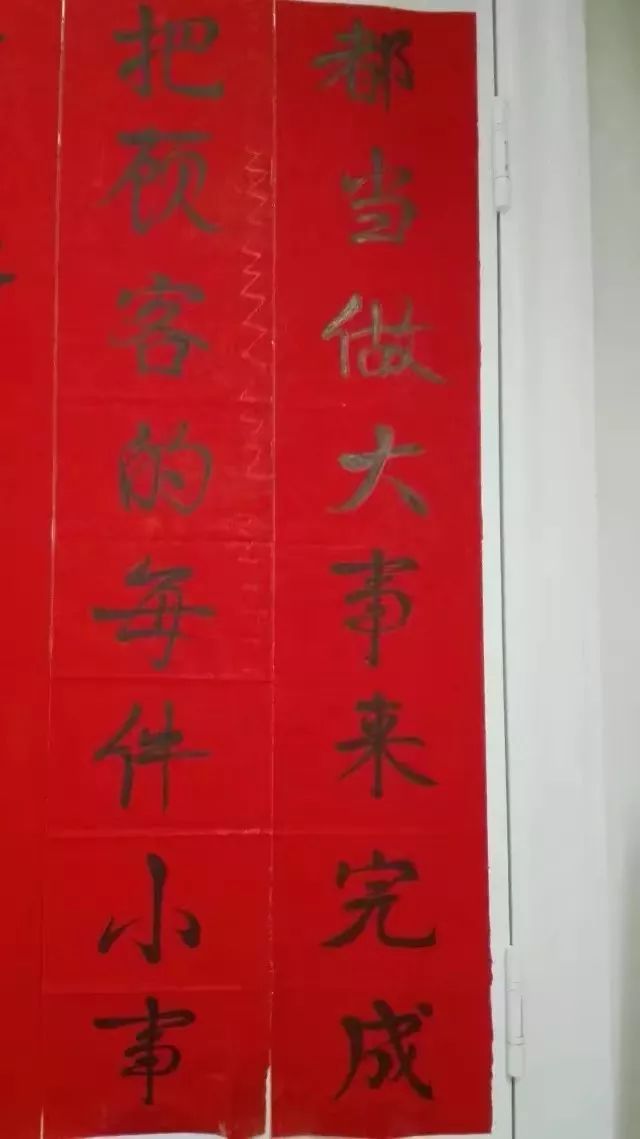 把顾客的每件小事
都当做大事来完成